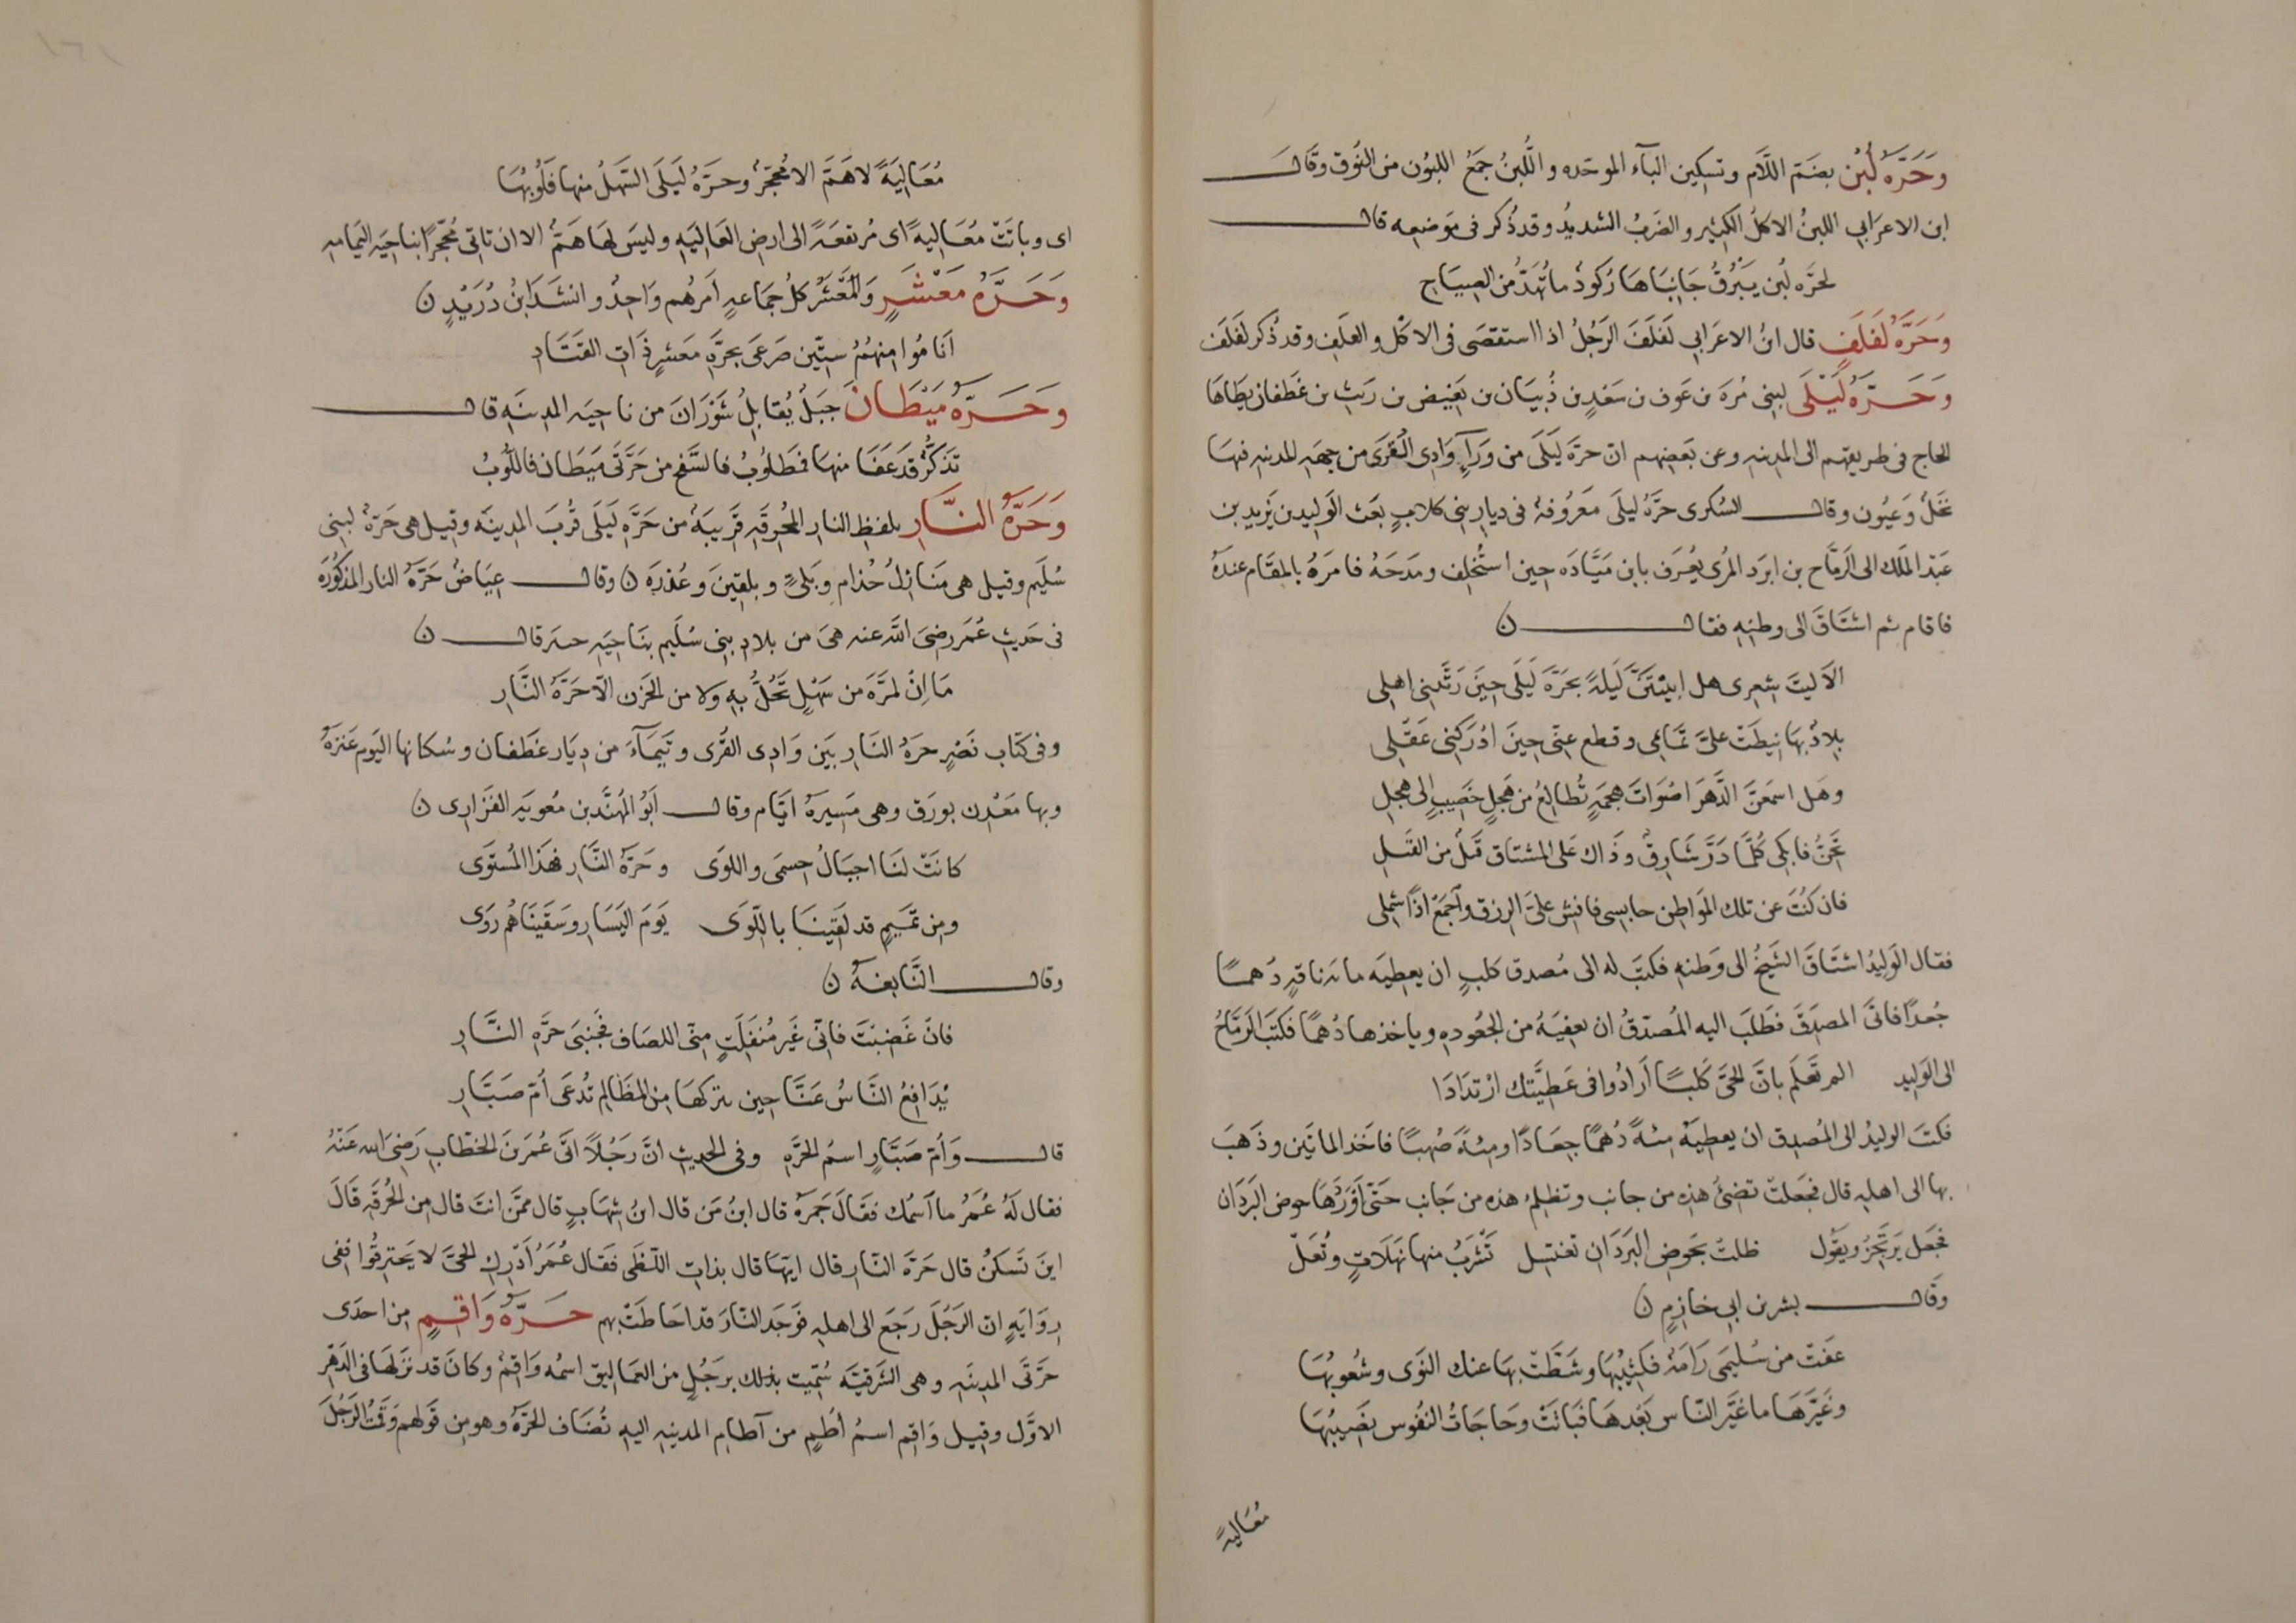 وَحَرَّةُ لُبْن بضَمّ اللَّام وتسكين الباء الموحّده واللُّبنُ جَمعُ اللبُون من النُوق وقَال
ابن الاعرَابي اللبنُ الاكلُ الكثير والضَربُ الشديدُ وقد ذُكر فى مَوضعه قال
لحَرَّه لُبن يبرُقُ جَانِبَاهَا رُكودٌ ما تُهَدُّ من الصِيَاح
وَحَرَّةُ لَفلَفٍ قال ابنُ الاعرَابي لَفلَفَ الرَجُلُ اذا استقصَى فى الاكل والعلَفِ وقد ذُكر لَفلَف
وَحَرَّةُ لَيْلَى لبنى مُرَة بن عَوف بن سَعْدِ بن ذُبيَان بن بَغِيض بن رَيث بن غَطفان يطَاهَا
الحاج فى طريقهم الى المدينه وعن بَعضِهم ان حرّة لَيلَى من وَرَآءِ وَادِى القُرَى من جهَهِ المدينه فيهَا
نخلٌ وَعيُون وقال السُكرى حَرَّةُ ليلَى مَعرُوفةٌ فى ديار بنى كلابٍ بعَث الوَليد بن يَزيد بن
عَبْد المَلك الى الرمَّاح بن ابرَد المُرى يُعرَف بابن مَيَّادَه حِين استُخلف ومَدحَهُ فامَرهُ بالمقَام عندَهُ
فاقام ثم اشتَاقَ الى وطنِهِ فقال ن
الا ليتَ شِعرِى هل ابيْتَنَّ لَيلَةً بحَرَّةِ لَيلَى حِينَ رَبَّتنى اهلى
بِلادٌ بهَا نيطَتْ علىَّ تمَامِى وقطع عنّى حِينَ ادْرَكنِى عَقْلى
وهَل اسمَعَنَّ الدَّهرَ اصْوَاتَ هجمَةٍ تُطالعُ من هَجلٍ خصيبٍ الى هجلِ
تحِنُّ فابكى كُلَّما ذَرَّ شَارِقٌ وذَاكَ عَلى المشتاق قَتلٌ من القَتلِ
فان كنتَ عن تلك المَوَاطِن حابسِى فافش علىَّ الرزق وَاجمَعْ اذًا شملى
فقال الوَليدُ اشتَاقَ الشيخُ الى وَطنهِ فكتَبَ له الى مُصدق كلبٍ ان يعطيَه مائة ناقةٍ دُهمًا
جُعدًا فاتىَ المصَدِّقَ فطَلبَ اليه المُصدّقُ ان يعفيَهُ من الجعُودهِ وياخذها دُهمًا فكتبَ الرمَّاحُ
الى الوَليدِ الم تَعلَم بانَّ الحىَّ كَلبًا اَرَادُوا فى عَطيَّتك ارْتدَادَا
فكتَب الوليدُ الى المُصدِق ان يعطيَهُ مِئهً دُهمًا جعَادًا ومِئةً صُهبًا فاخَذ المائتَين وذَهبَ
بها الى اهلِهِ قال فجَعلتْ تضئُ هذه من جانب وتظلمُ هذه من جَانب حَتّى اَوْرَدْهَا حوض البَرَدَان
فجعَل يَرتَجزُ ويقول ظلتْ بحَوضِ البرَدَان تغتسل تَشْرَبُ منها نهَلاتٍ وتُعَلّ
وقَال بشر بن ابى خازمٍ ن
عفتْ من سُليمى رَامَةُ فكثيبُهَا وشَطّتْ بهَا عنك النوَى وشُعوبُهَا
وغَيَّرَهَا ما غيَّر النّاس بَعْدهَا فبَانَتْ وحَاجَاتُ النفُوس بصَيبُهَا
مُعَاليةً
مُعَاليَةً لاهَمَّ الا مُحجَّرٌ وحرَّةُ لَيلَى السَّهلُ منها فَلُوبُهَا
اى وباتَتْ مُعَاليهً اى مُرتفعَةً الى ارضِ العَاليَهِ وليس لهَا هَمٌّ الا ان تاتى مُحجّرًا بناحِيَه اليَمامه
وَحَرَّةُ مَعْشَرٍ وَالمَعْشَرُ كلُ جمَاعهٍ اَمرُهم وَاحِدٌ وانشَدَ ابنُ دُرَيْدٍ ن
اَنامُوا منهمُ ستّين صَرعَى بحَرَّةِ مَعشرٍ ذَاتِ القتَاد
وحَرَّةُ مَيْطَانَ جبَلٌ يُقابلُ شَوْرَانَ من ناحيَه المدينَهِ قال
تذكَّرُ قد عَفَا منهَا فمَطلُوبُ فالسَّفح من حَرَّتَى مَيطَان فاللُوبُ
وَحَرَّةُ النَّارِ بلفظِ النارِ المُحرقَهِ قرِيبَةٌ من حَرَّه لَيلَى قُربَ المدينَه وقيل هى حَرّةٌ لبنى
سُليَم وقيل هى مَنَازلُ جُذامٍ وَبَلىٍّ وبلقينَ وعُذرَه ن وقال عيَاضُ حَرَّةُ النار المذكُورَة
فى حَديثِ عُمَر رضىَ اللّٰه عنه هىَ من بلادِ بنى سُليَم بنَاحيَهِ حره قال ن
مَا اِنْ لمرَّةَ من سَهْلٍ تَحُلُّ بهِ ولا من الحَزن الّا حَرَّةُ النَّارِ
وفى كتَاب نَصْرٍ حرَةُ النَارِ بَين وَادِى القُرى وتَيمَآءَ من ديَار غَطفان وسُكانها اليَوم عَنزةُ
وبها مَعْدن بورَق وهى مَسِيرَةُ ايَّام وقال اَبوُ المُهنَّد بن مُعويَه الفَزَارِى ن
كانَتْ لنَا اجبَالُ حِسمَى واللوَى وحَرَّةُ النَّارِ فهَذا المُستَوَى
ومِن تميمٍ قد لقَيْنا باللّوَى يَومَ اليَسَارِ وسَقَينَاهُم رِوَى
وقال النَّابغةُ ن
فانْ غَضبْتَ فانّى غَير مُنفَلَتٍ منّى اللصَاف فجَنبىَ حرَّهِ النَّارِ
يُدَافعُ النَّاسُ عَنَّا حِين نتركهَا مِن المظَالم تُدعَى اُمّ صَبَّارِ
قال وَاُم صَبَّارٍ اسمُ الحَرَّهِ وفى الحديثِ انَّ رَجُلاً اتَى عُمَر بنَ الخطّابِ رَضِىَ الله عَنْهُ
فقال لهُ عُمَرُ ما اَسْمُك فقَالَ جَمرَةُ قال ابنُ مَن قال ابنُ شِهَابٍ قال ممّن انتَ قال مِن الحُرقَهِ قَالَ
اينَ تَسكنُ قال حَرَّة النّارِ قال ايّهَا قال بذاتِ اللّظَى فَقال عُمَرُ اَدْرِكِ الحىَّ لا يَحتَرِقُوا ففى
رِوَايَهٍ ان الرَجُلَ رَجَع الى اهلهِ فوَجَد النّارَ قد احَاطَتْ بهم حَرَّةُ وَاقِمٍ مِن احدَى
حَرَّتَى المدينَهِ وهى الشَرقيَّه سُمّيت بذلك برَجُلٍ من العمَاليق اسمُه وَاقِمٌ وكانَ قد نزلَهَا فى الدَهْر
الاوَّل وقيل وَاقم اسمُ اُطُمٍ من آطامِ المدينهِ اليهِ تُضَاف الحَرَّةُ وهو مِن قَولهم وَقَمْتُ الرَجُلَ